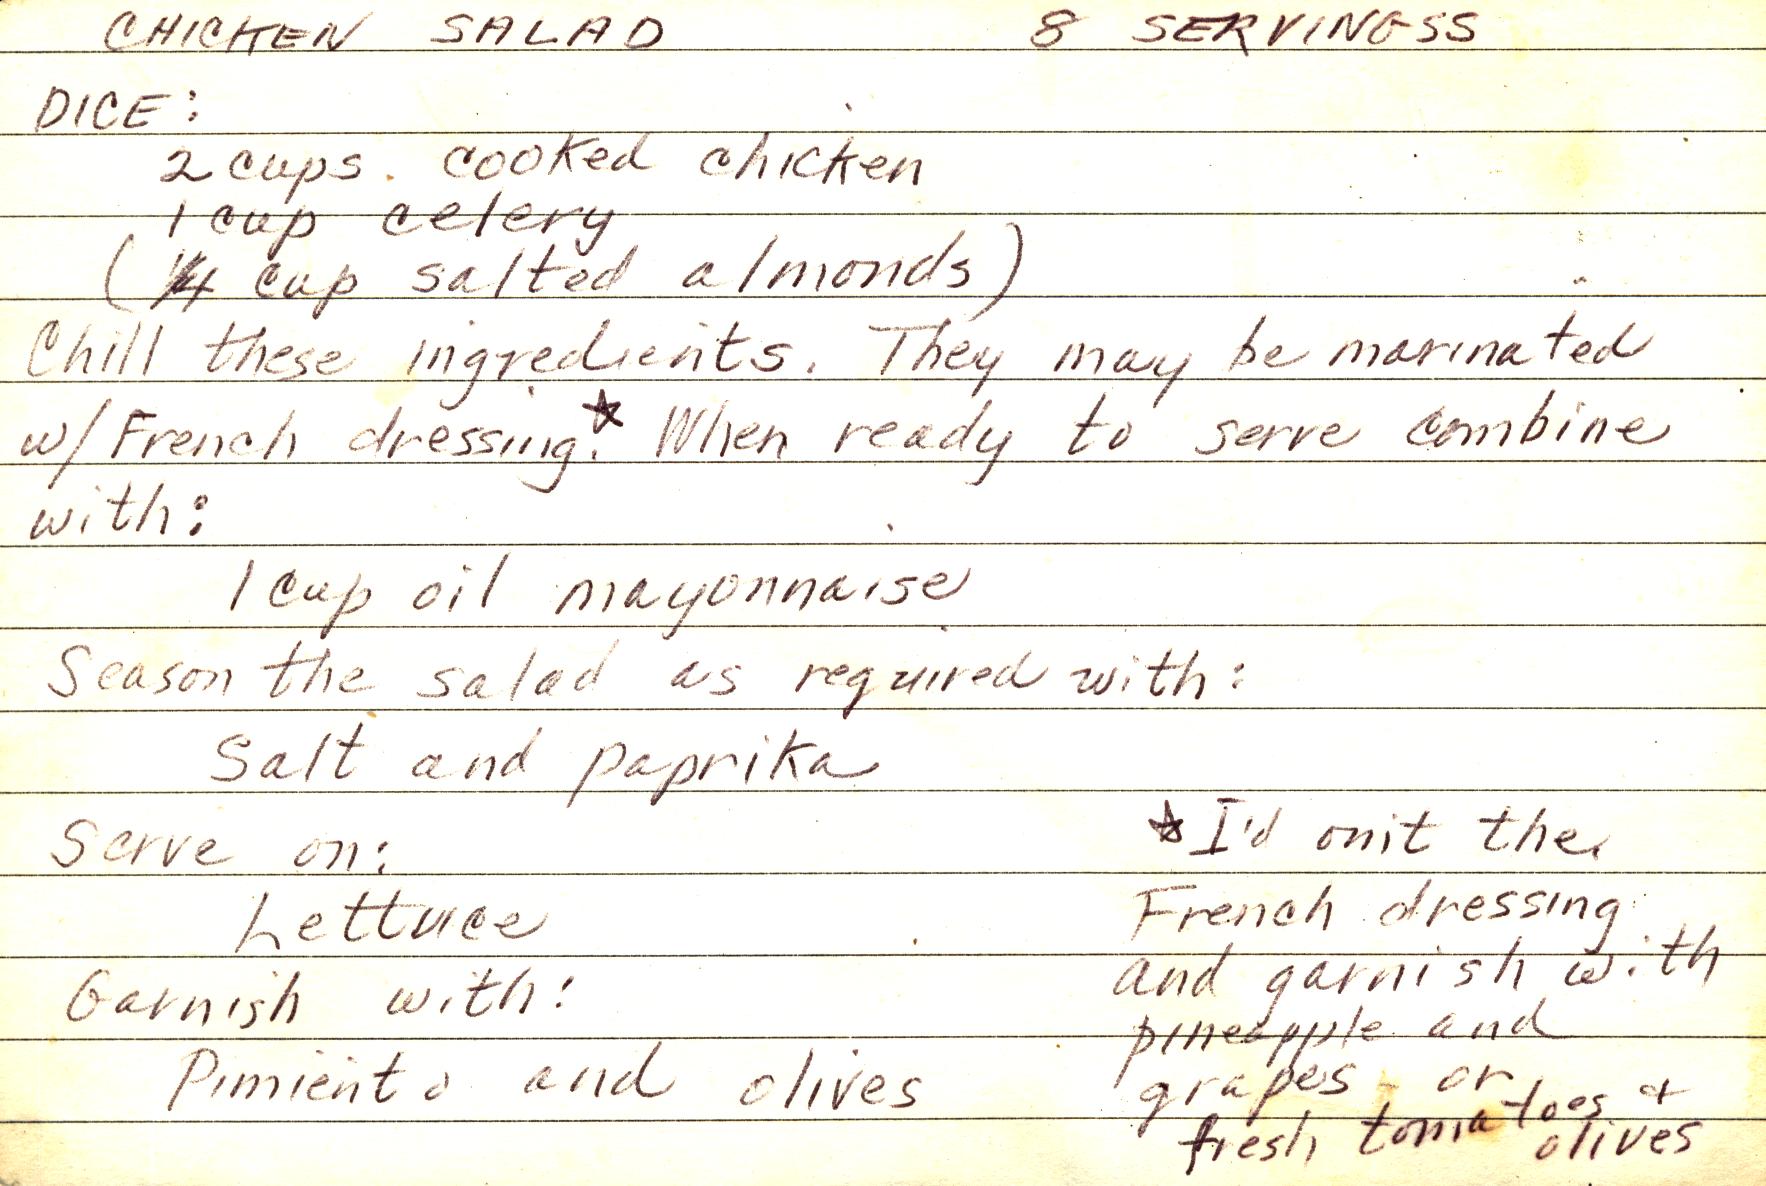 CHICKEN SALAD 8 SERVINGSS
DICE:
2 cups cooked chicken
1 cup celery
(1/4 cup salted almonds)
Chill these ingredients. They may be marinated
w/ French dressing.☆ When ready to serve combine
with:
1 cup oil mayonnaise
Season the salad as required with:
Salt and paprika
Serve on:
Lettuce
Garnish with:
Pimiento and olives
☆ I'd omit the
French dressing
and garnish with
pineapple and
grapes - or
fresh tomatoes +
olives